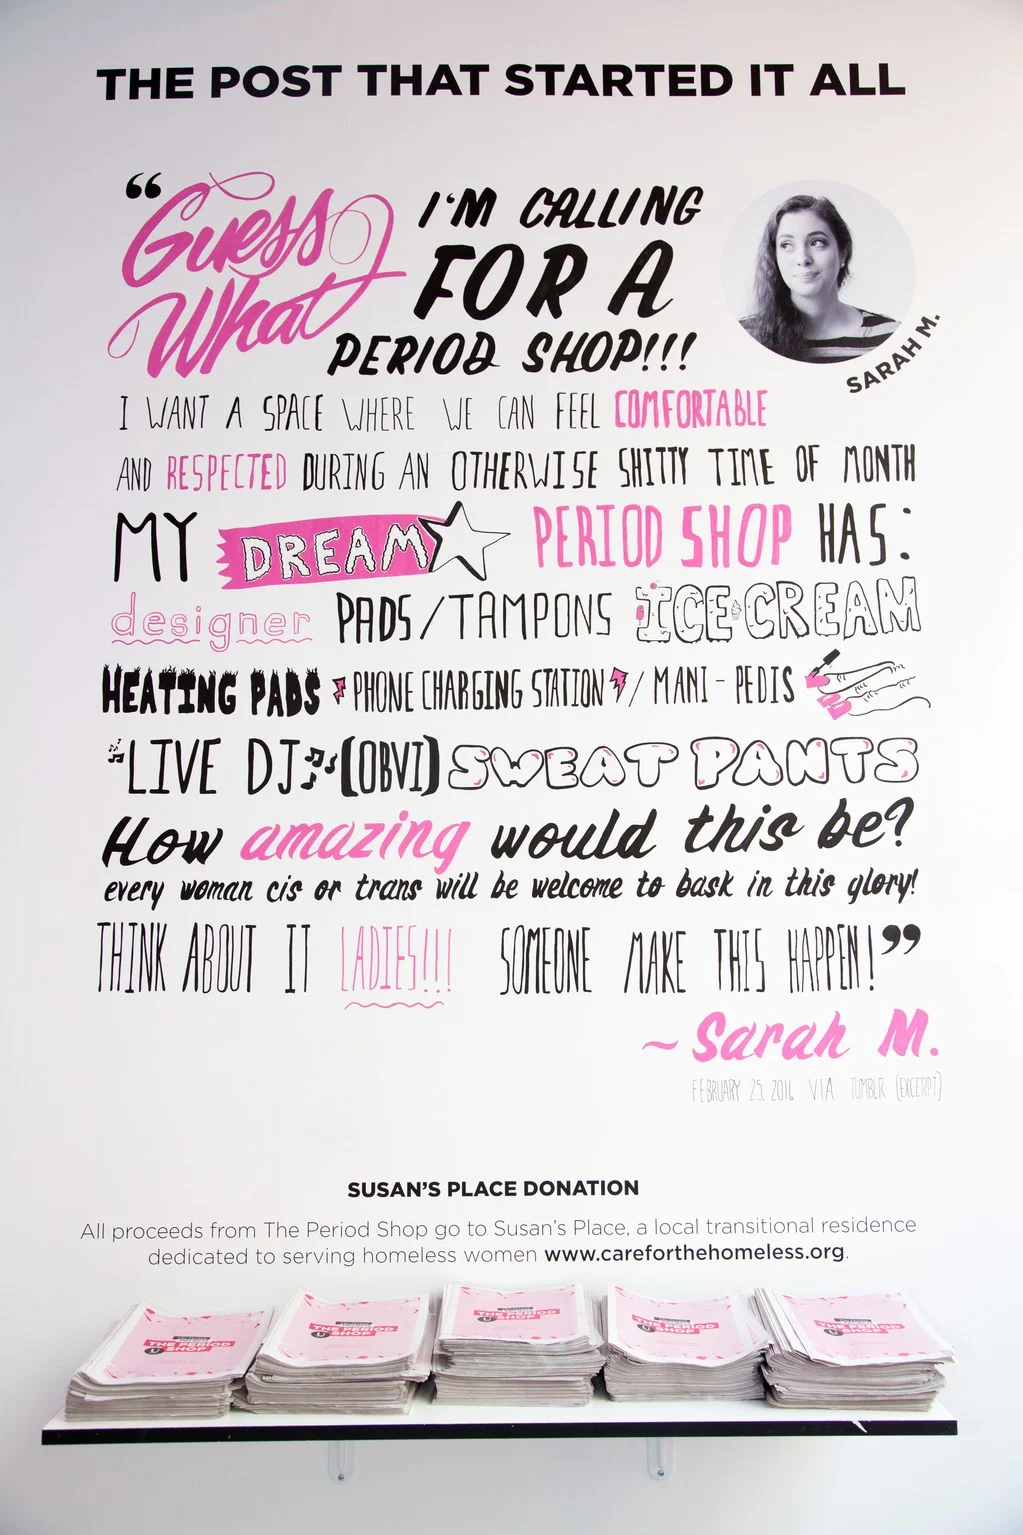 THE POST THAT STARTED IT ALL
“Guess What I'M CALLING FOR A PERIOD SHOP!!!
SARAH M.
I WANT A SPACE WHERE WE CAN FEEL COMFORTABLE
AND RESPECTED DURING AN OTHERWISE SHITTY TIME OF MONTH
MY DREAM PERIOD SHOP HAS:
designer PADS/TAMPONS ICE-CREAM
HEATING PADS PHONE CHARGING STATION / MANI-PEDIS
LIVE DJ (OBVI) SWEAT PANTS
How amazing would this be?
every woman cis or trans will be welcome to bask in this glory!
THINK ABOUT IT LADIES!!! SOMEONE MAKE THIS HAPPEN!”
~Sarah M.
FEBRUARY 25, 2016 VIA TUMBLR (EXCERPT)
SUSAN'S PLACE DONATION
All proceeds from The Period Shop go to Susan's Place, a local transitional residence
dedicated to serving homeless women www.careforthehomeless.org.
THE PERIOD
SHOP
THE PERIOD
SHOP
THE PERIOD
SHOP
THE PERIOD
SHOP
THE PERIOD
SHOP